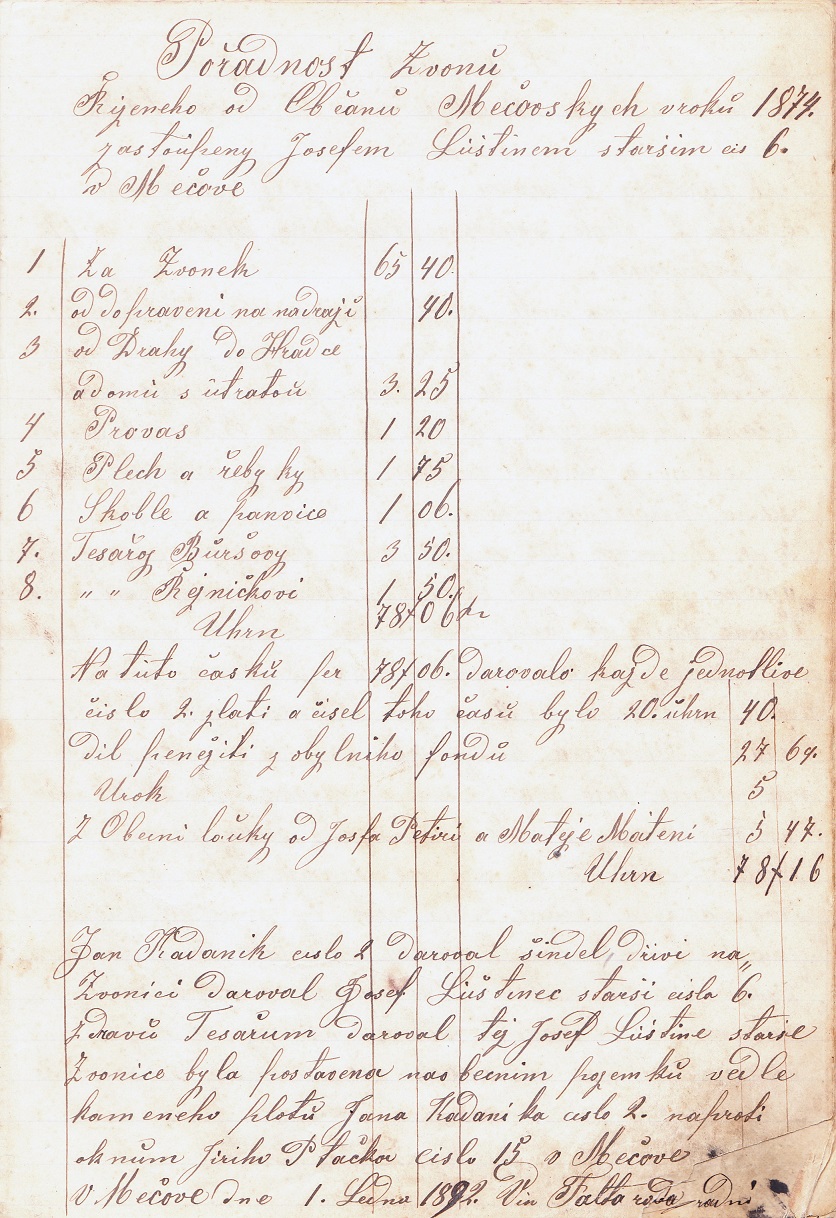 Pořadnost Zvonu
Řijeneho od Občanů Mečovskych vroků 1874.
zastoůpeny Josefem Lůštinem staršim čis 6.
v Mečove
1 Za Zvonek 65 40.
2. od dopraveni na nadraji 40.
3 od Drahy do Hradce
a domů s ůtratoů 3. 25
4 Provas 1 20
5 Plech a řebyky 1 75
6 Skoble a panvice 1 06.
7. Tesařoj Bůršovy 3 50.
8. " " Řejničkovi 1 50.
Uhrn 78f 06 kr
Na tůto častků per 78f 06. darovalo kajde jednotlive
čislo 2. zlati a čisel toho časů bylo 20. ůhrn 40.
dil peněžiti z obylniho fondů 27 69.
Urok 5
Z Obecni loůky od Josfa Petirů a Mateje Máteni 5 47.
Uhrn 78f 16
Jan Kadanik cislo 2 daroval šindel, dřivi na
Zvonici daroval Josef Lůštinec starši cislo 6.
Zdravů Tesařum daroval tej Josef Lůštine starše
Zvonice byla postavena na obecnim pozemků vedle
kameneho plotů Jana Kadanika cislo 2. naproti
oknům Jiriho Ptačka cislo 15 v Mečove
V Mečove dne 1. Ledna 1892. Vin Falta radni